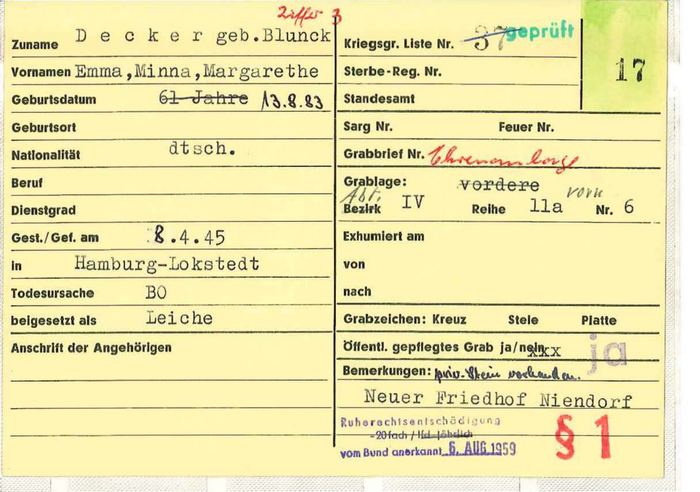 Ziffer 3
Zuname Decker geb. Blunck
Vornamen Emma, Minna, Margarethe
Geburtsdatum 61 Jahre 13.8.83
Geburtsort
Nationalität dtsch.
Beruf
Dienstgrad
Gest./Gef. am 8.4.45
in Hamburg-Lokstedt
Todesursache BO
beigesetzt als Leiche
Anschrift der Angehörigen
Kriegsgr. Liste Nr. 37 geprüft
17
Sterbe-Reg. Nr.
Standesamt
Sarg Nr. Feuer Nr.
Grabbrief Nr. Ehrenanlage
Grablage: vordere
Abt. vorn
Bezirk IV Reihe 11a Nr. 6
Exhumiert am
von
nach
Grabzeichen: Kreuz Stele Platte
Öffentl. gepflegtes Grab ja/nein xxx ja
Bemerkungen: priv. Stein vorhanden.
Neuer Friedhof Niendorf
Ruherechtsentschädigung
-20fach / lfd. jährlich
vom Bund anerkannt 6. AUG. 1959
§ 1